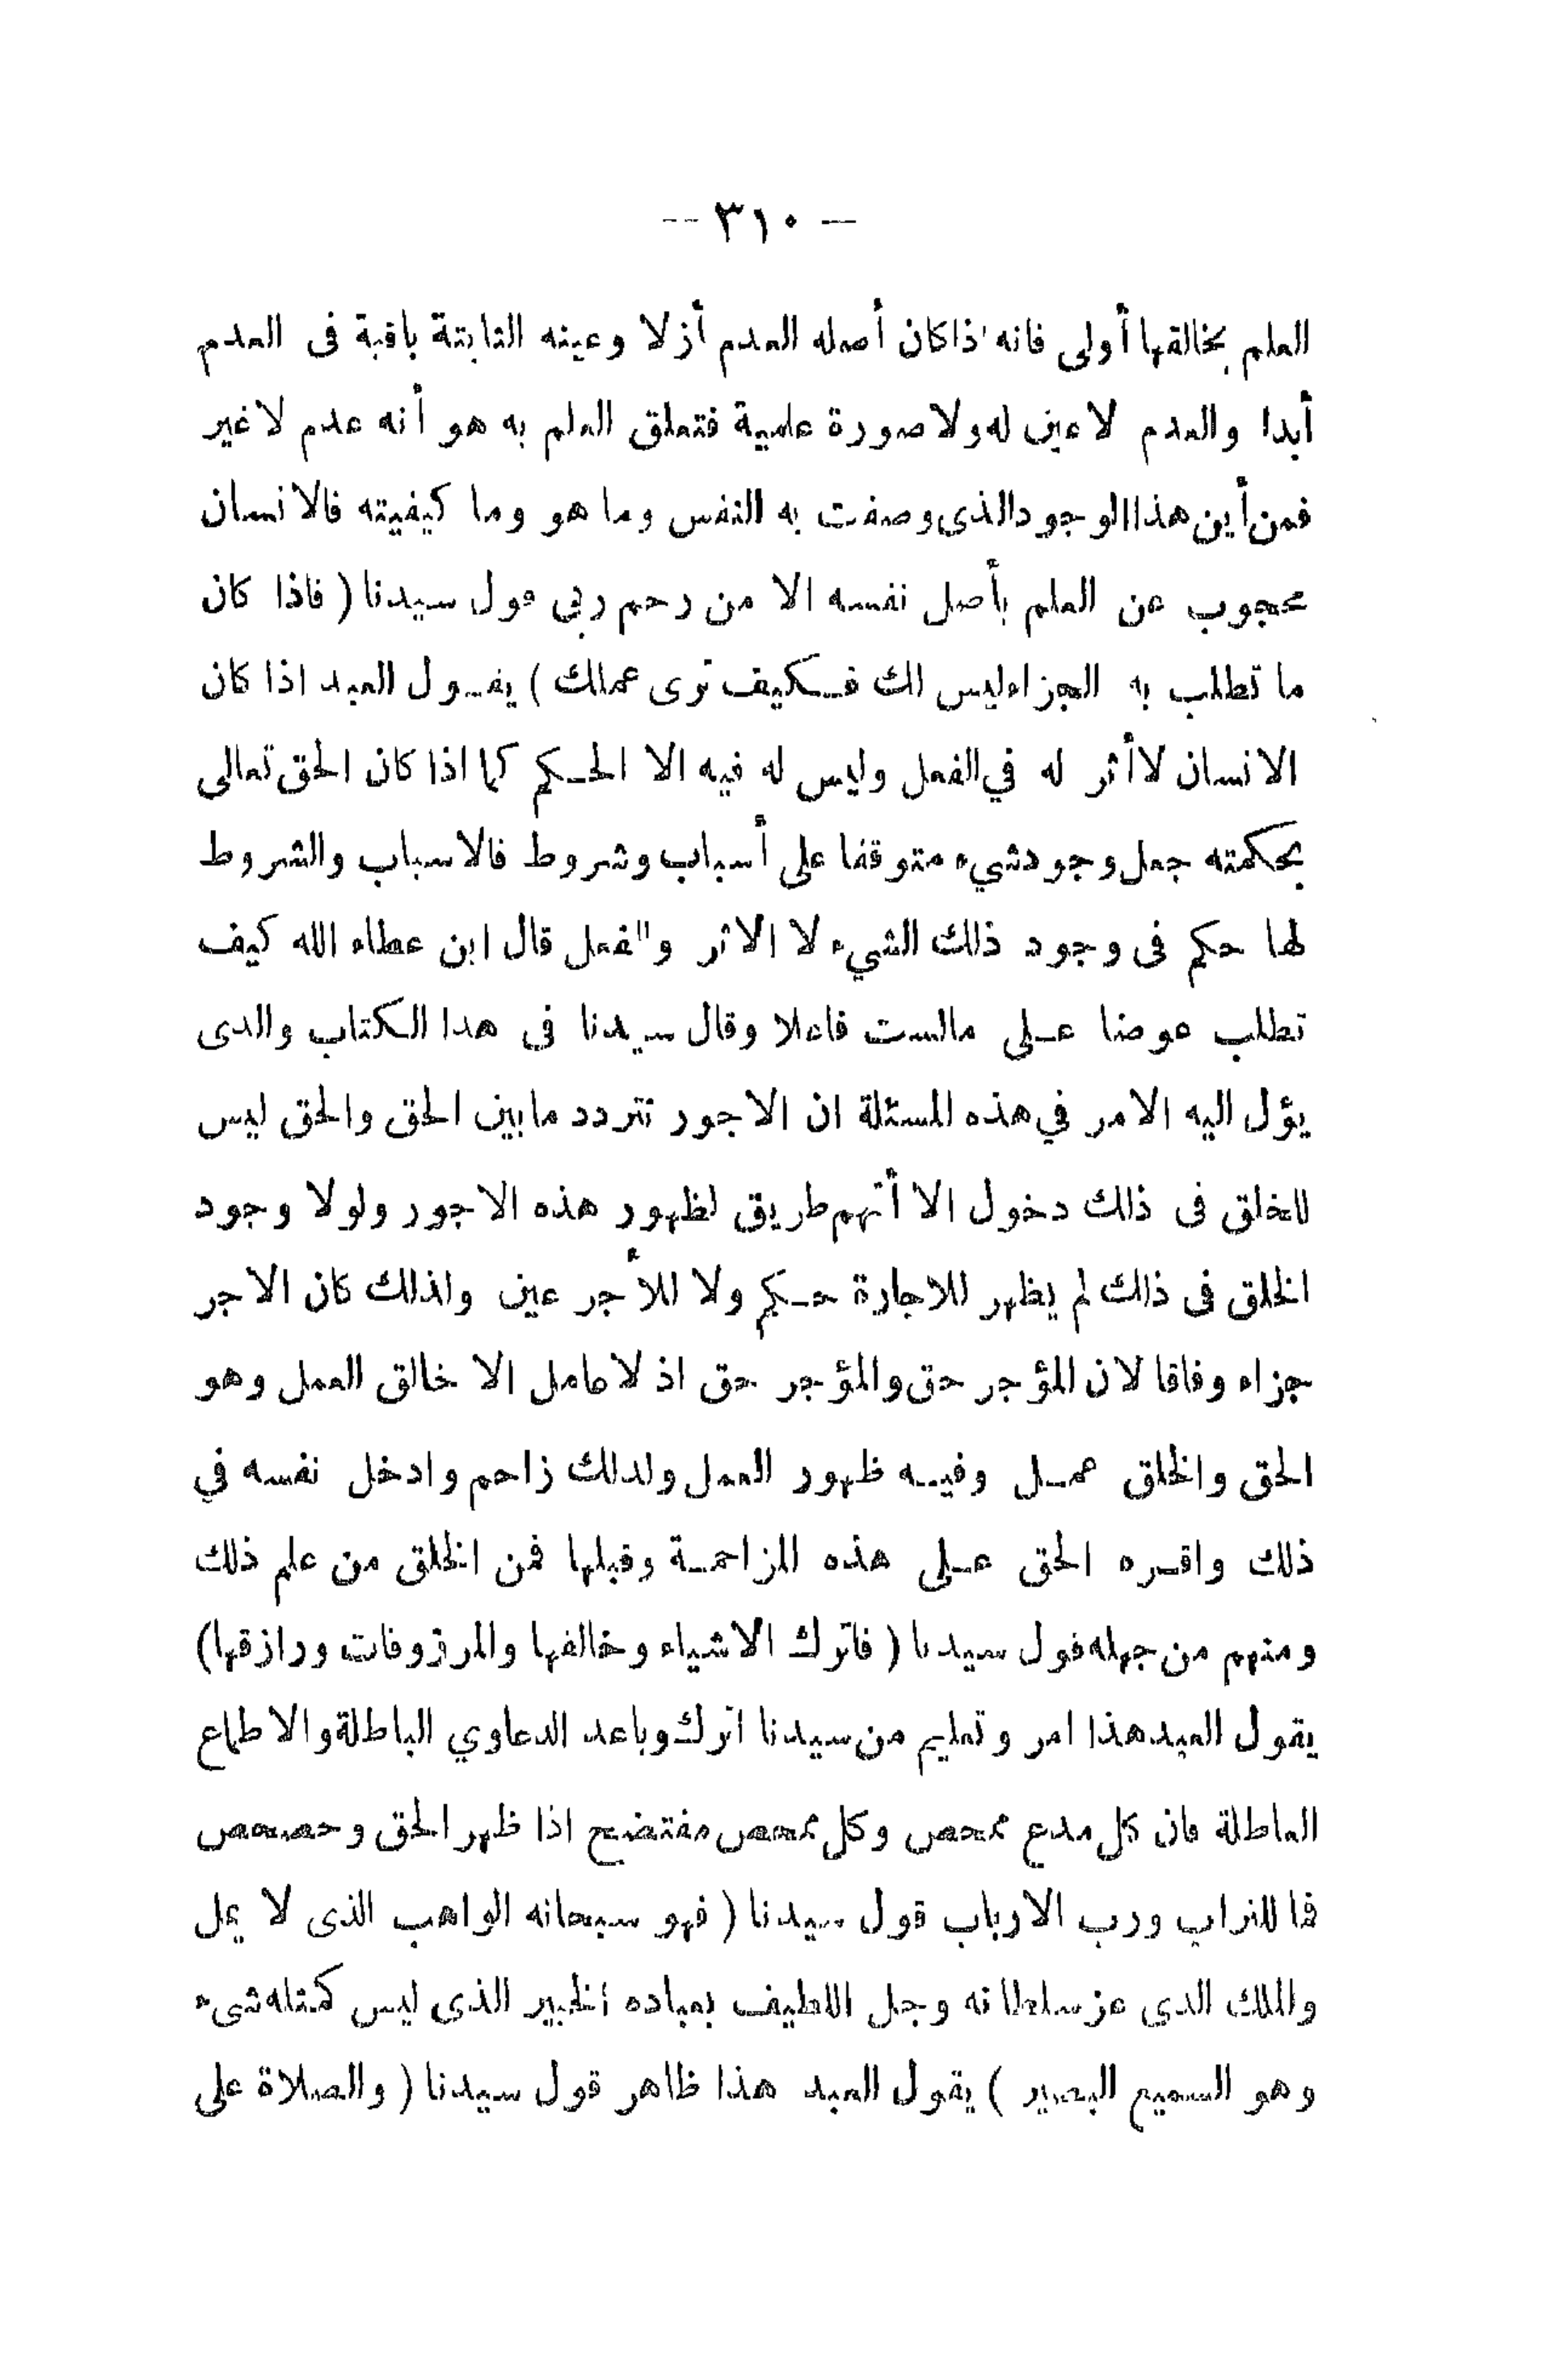 — ٣١٠ —
العلم بخالقها أولى فانه اذا كان أصله العدم أزلا وعينه الثابتة باقية فى العدم
أبدا والعدم لا عين له ولا صورة علمية فتعلق العلم به هو أنه عدم لا غير
فمن أين هذا الوجود الذى وصفت به النفس وما هو وما كيفيته فالانسان
محجوب عن العلم بأصل نفسه الا من رحم ربي قول سيدنا ( فاذا كان
ما تطلب به الجزاء ليس لك فكيف ترى عملك ) يقول العبد اذا كان
الانسان لا أثر له في الفعل وليس له فيه الا الحكم كما اذا كان الحق تعالى
بحكمته جعل وجود شيء متوقفا على أسباب وشروط فالاسباب والشروط
لها حكم فى وجود ذلك الشيء لا الاثر والفعل قال ابن عطاء الله كيف
تطلب عوضا على ما لست فاعلا وقال سيدنا فى هذا الكتاب والذى
يؤل اليه الامر في هذه المسئلة ان الاجور تتردد ما بين الحق والحق ليس
للخلق فى ذلك دخول الا أنهم طريق لظهور هذه الاجور ولولا وجود
الخلق فى ذلك لم يظهر للاجارة حكم ولا للأجر عين ولذلك كان الاجر
جزاء وفاقا لان المؤجر حق والمؤجر حق اذ لا عامل الا خالق العمل وهو
الحق والخلق عمل وفيه ظهور العمل ولذلك زاحم وادخل نفسه في
ذلك واقره الحق على هذه المزاحمة وقبلها فمن الخلق من علم ذلك
ومنهم من جهله قول سيدنا ( فاترك الاشياء وخالقها والمرزوقات ورازقها)
يقول العبد هذا امر وتعليم من سيدنا اترك وباعد الدعاوي الباطلة والاطماع
العاطلة فان كل مدع ممحص وكل ممحص مفتضح اذا ظهر الحق وحصحص
فما للتراب ورب الارباب قول سيدنا ( فهو سبحانه الواهب الذى لا يمل
والملك الذى عز سلطانه وجل اللطيف بعباده الخبير الذى ليس كمثله شىء
وهو السميع البصير ) يقول العبد هذا ظاهر قول سيدنا ( والصلاة على